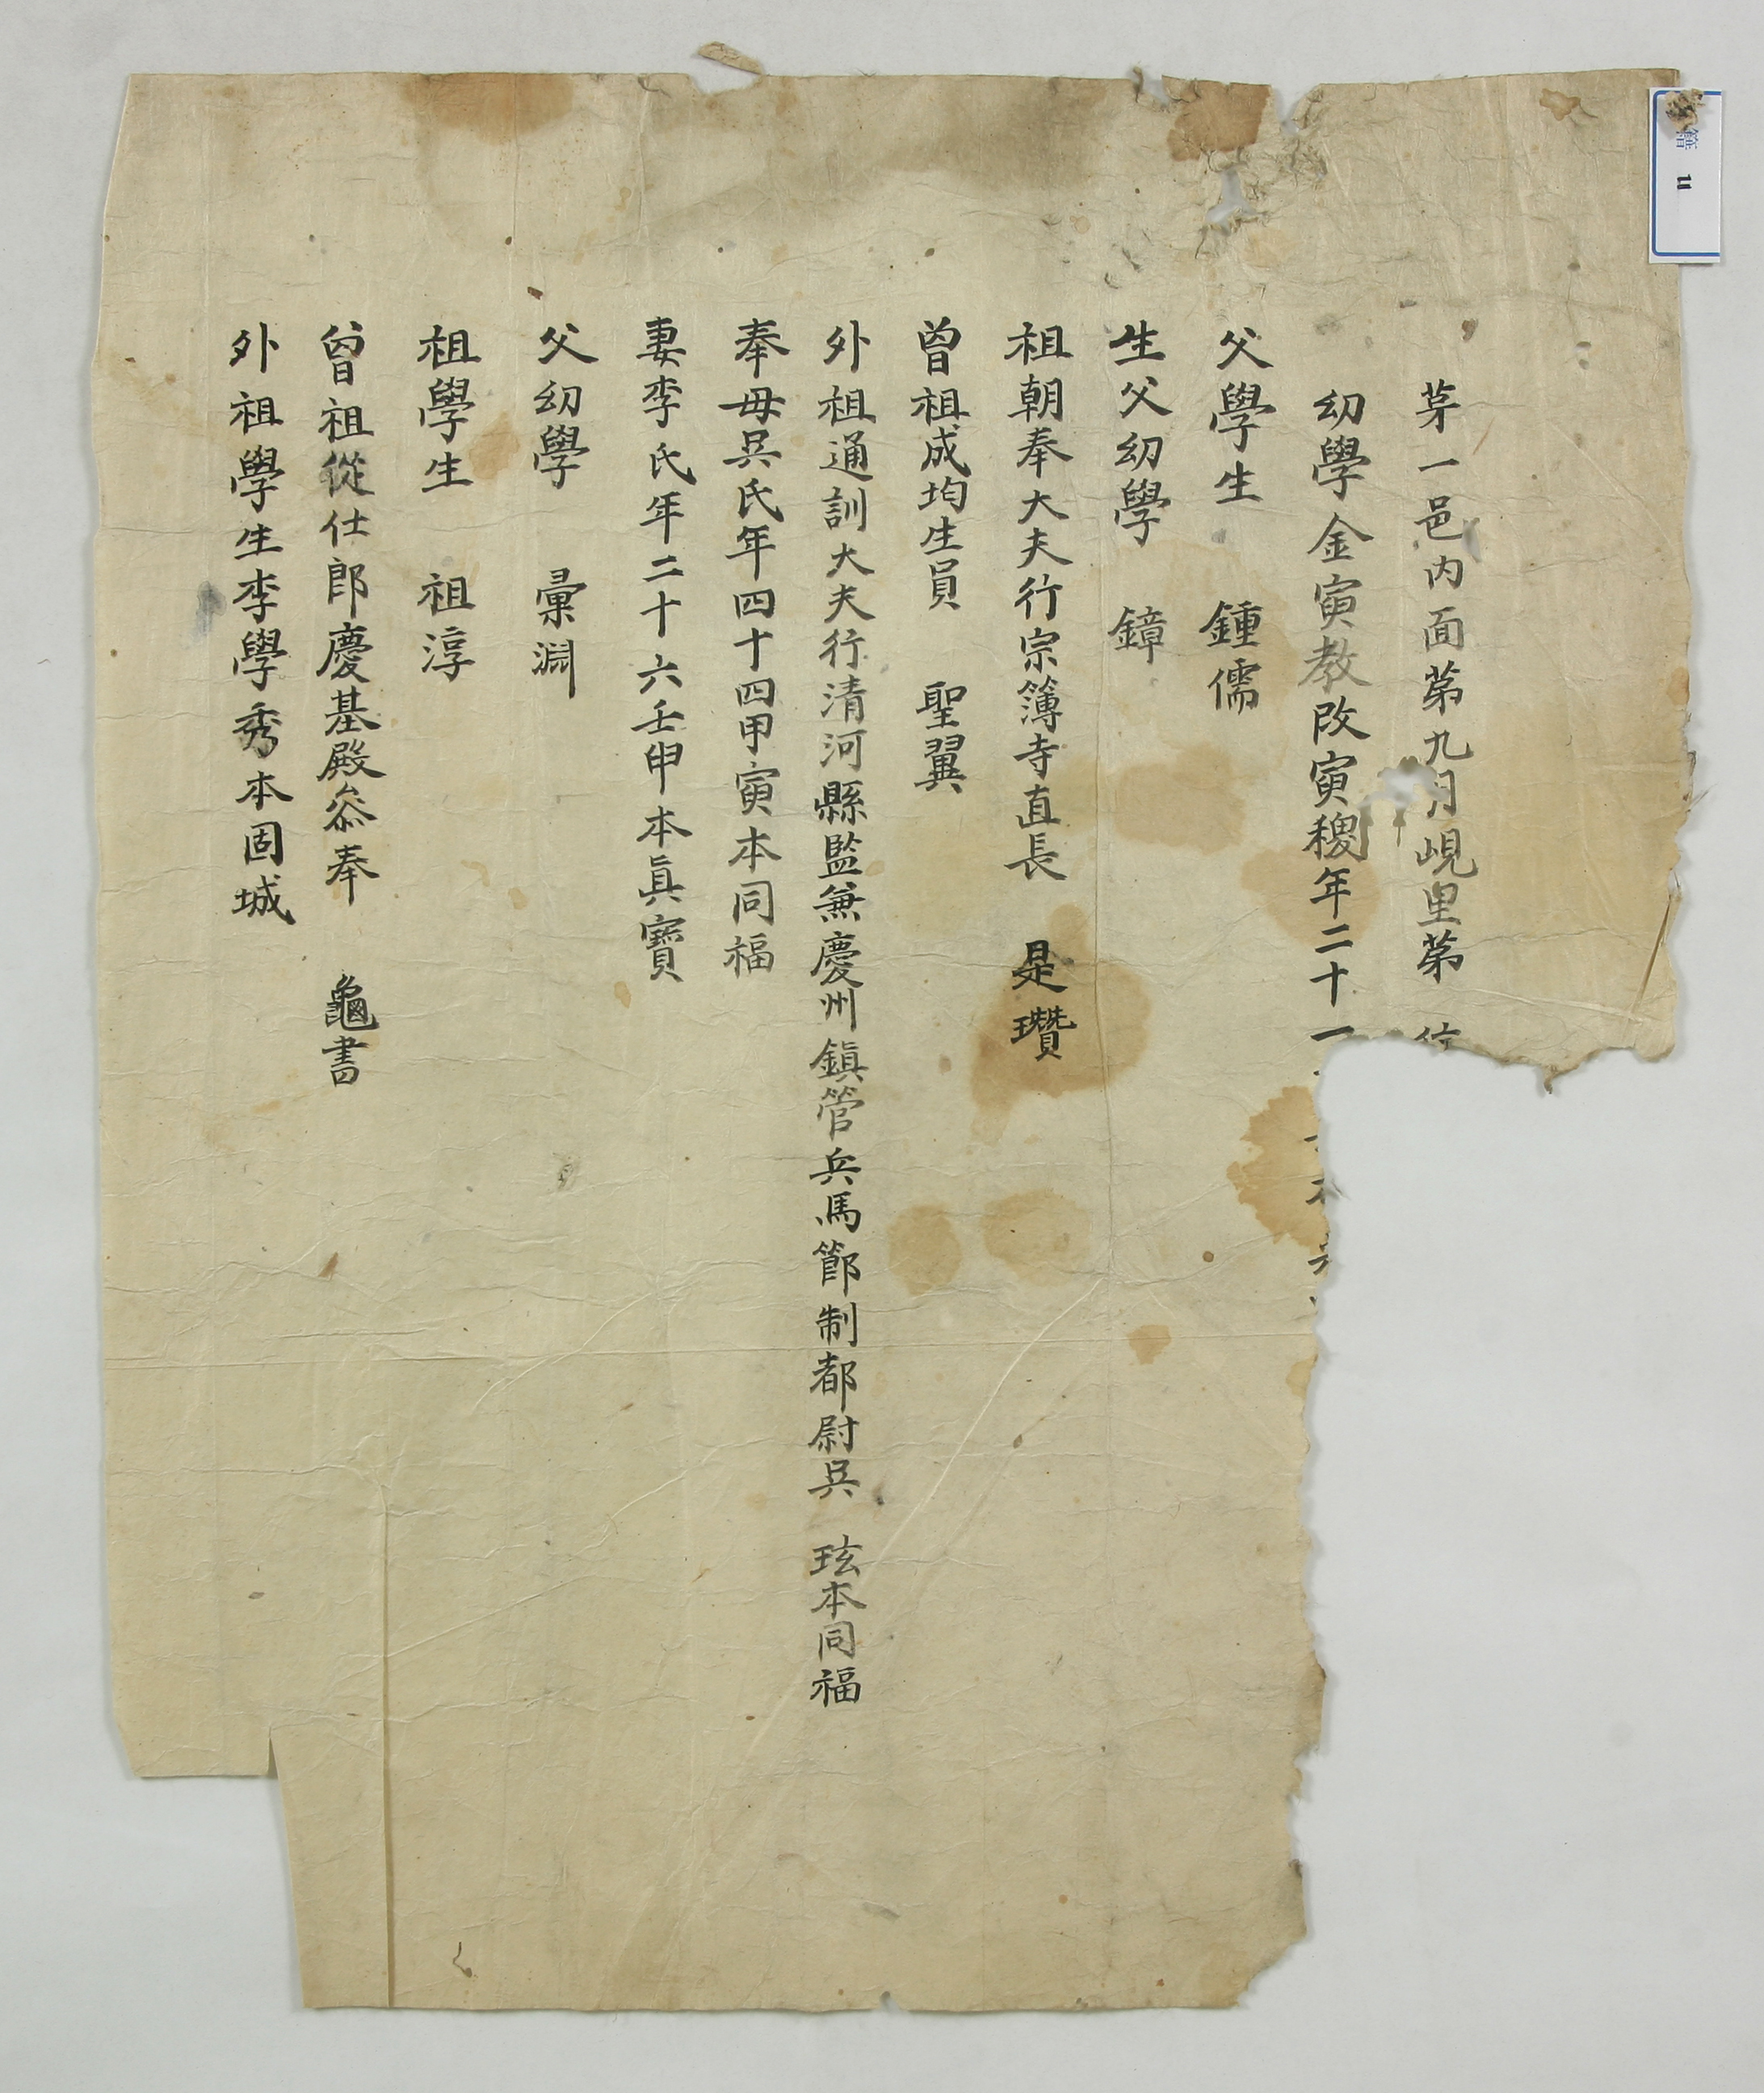 苐一邑内面苐九月峴里苐
幼學金寅教改寅稷年二十一
父學生　鍾儒
生父幼學　鏱
祖朝奉大夫行宗簿寺直長　是瓚
曾祖成均生員　聖翼
外祖通訓大夫行清河縣監兼慶州鎭管兵馬節制都尉吳　玹本同福
奉母吳氏年四十四甲寅本同福
妻李氏年二十六壬申本眞寶
父幼學　彙淵
祖學生　祖淳
曾祖從仕郎慶基殿叅奉　龜書
外祖學生李學秀本固城
籍